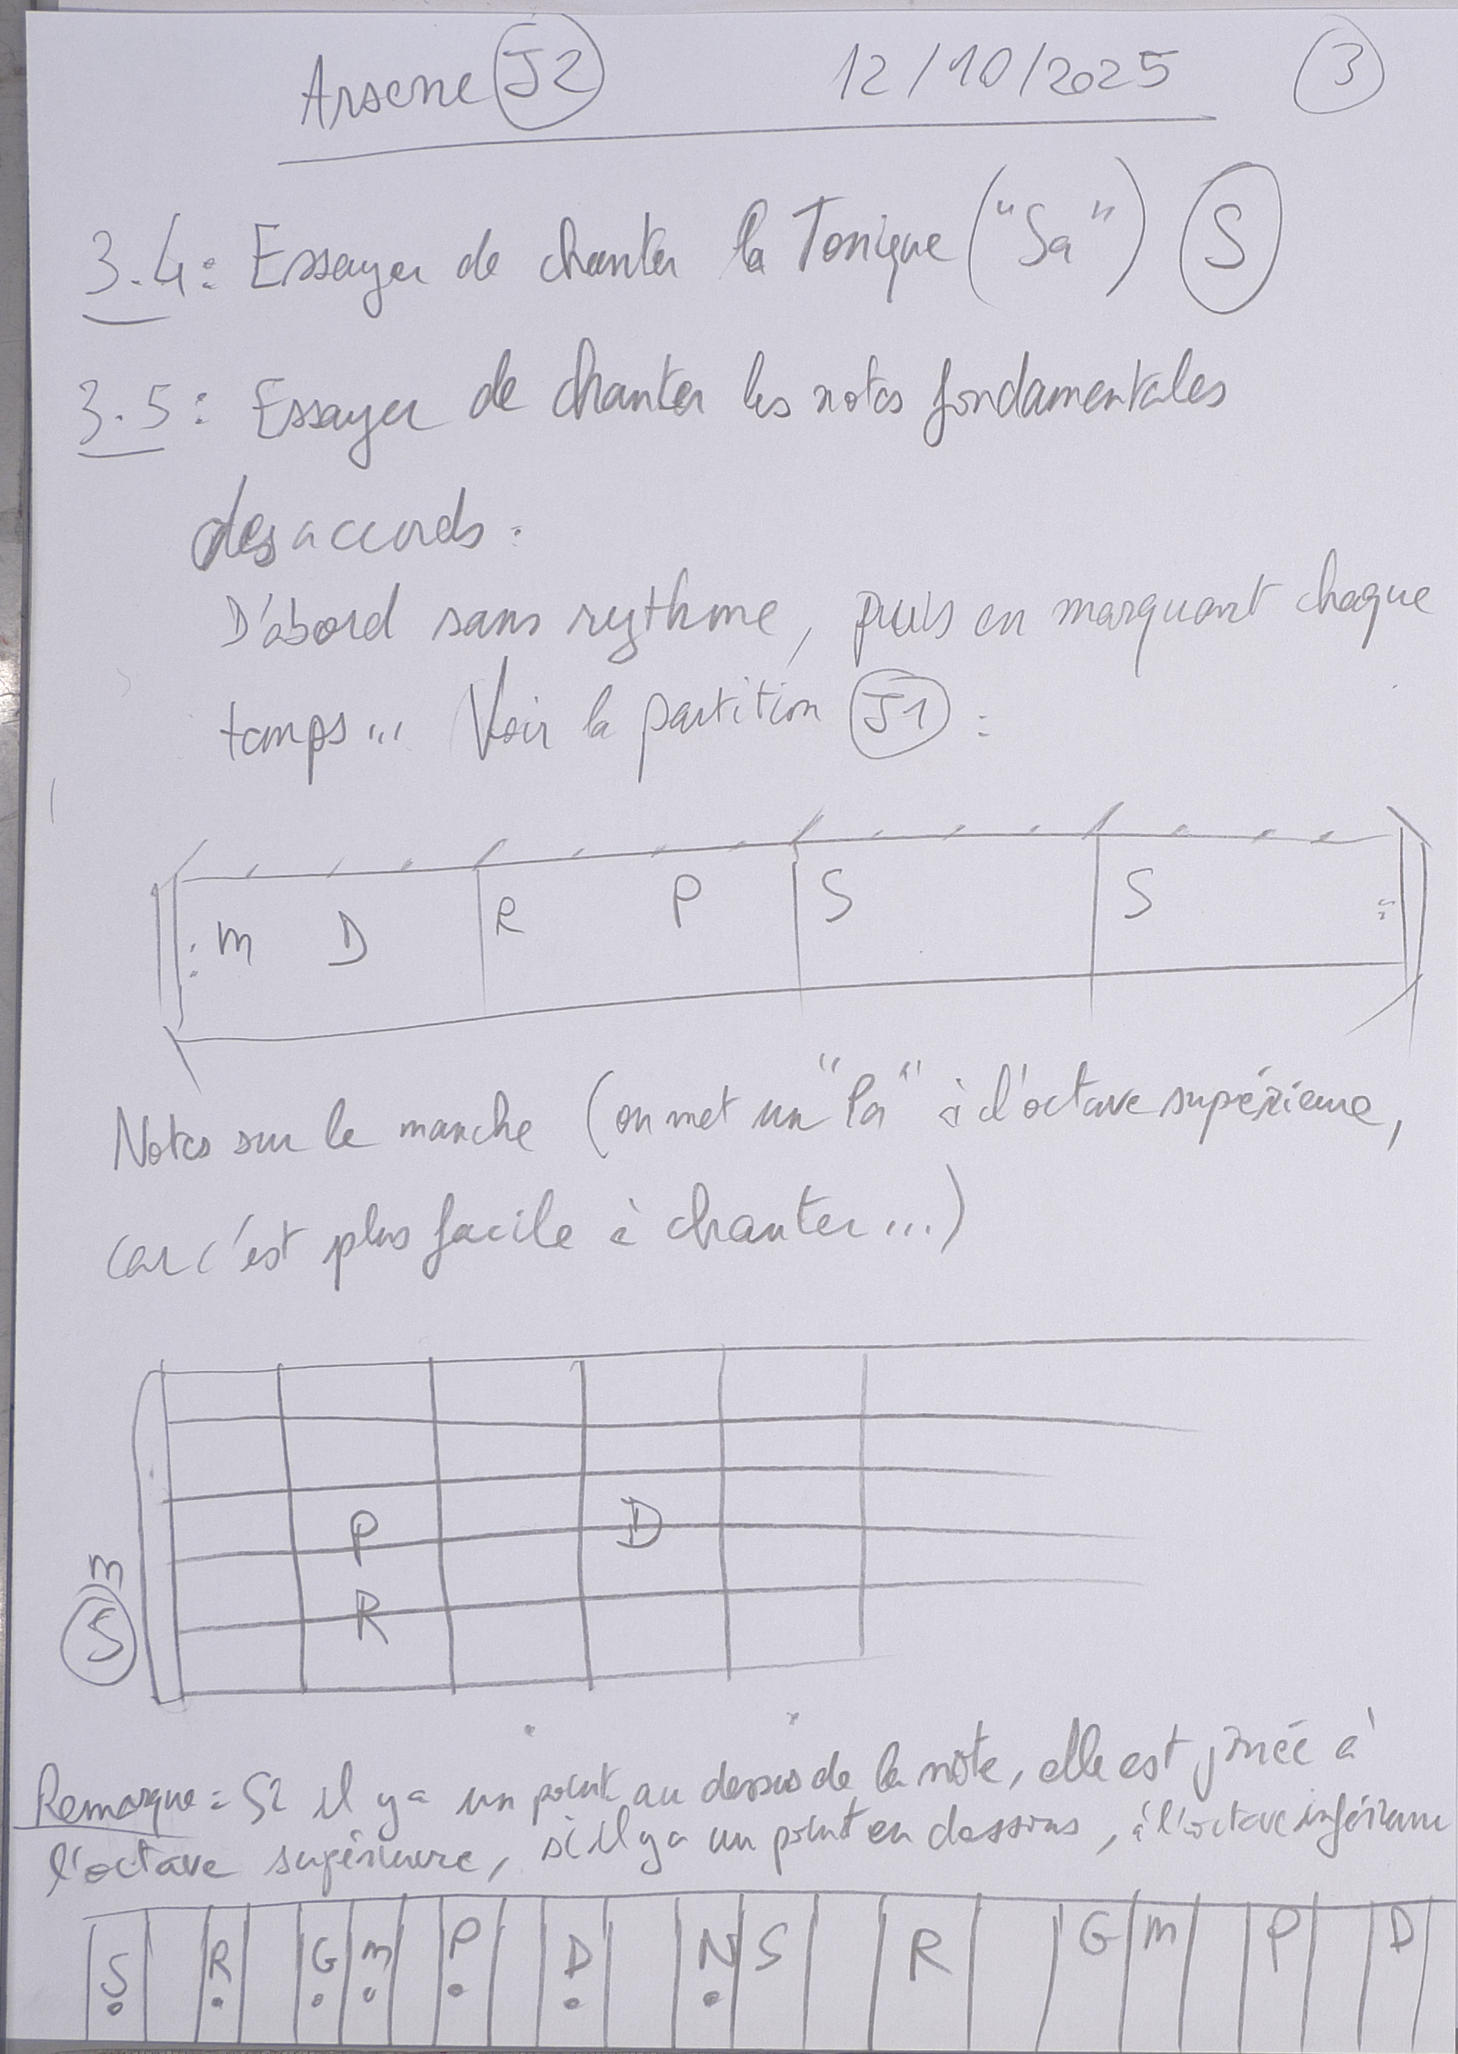 Arsene J2 12/10/2025 3
3.4: Essayer de chanter la Tonique ("Sa") S
3.5: Essayer de chanter les notes fondamentales
des accords.
D'abord sans rythme, puis en marquant chaque
temps... Voir la partition J1 :
m D R P S S
Notes sur le manche (on met un "Pa" à l'octave supérieure,
car c'est plus facile à chanter...)
P D
m
S R
Remarque: Si il y a un point au dessus de la note, elle est jouée à
l'octave supérieure, si il y a un point en dessous, à l'octave inférieure
S R G m P D N S R G m P D